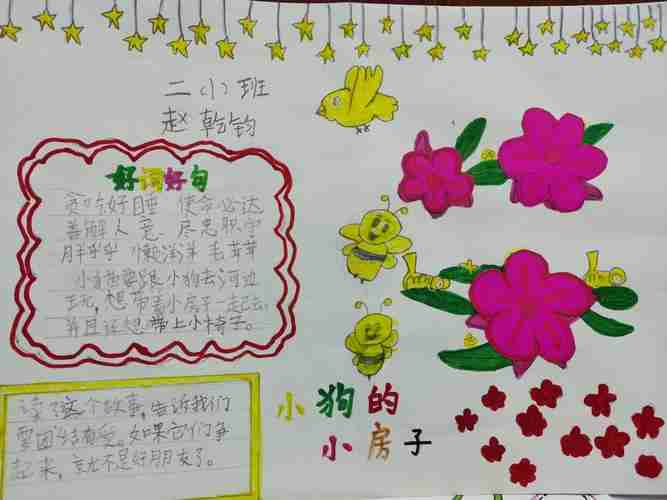 二(1)班
赵乾钧
好词好句
贪吃好睡 使命必达
善解人意 尽忠职守
胖乎乎 懒洋洋 毛茸茸
小猫要跟小狗去河边
玩,想带着小房子一起去,
并且还想带上小椅子。
读了这个故事,告诉我们
要团结友爱。如果它们争
起来,就不是好朋友了。
小狗的
小房子